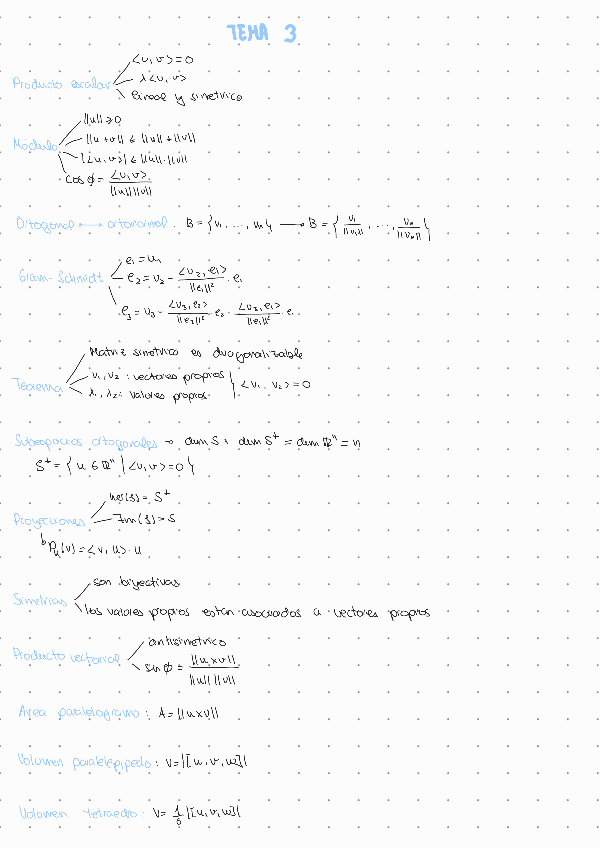 TEMA 3
Producto escalar
<u, v> = 0
λ<u, v>
lineal y simetrico
Modulo
||u|| ≥ 0
||u + v|| ≤ ||u|| + ||v||
|<u, v>| ≤ ||u||·||v||
cos ϕ = <u, v> / ||u|| ||v||
Ortogonal ⟷ ortonormal. B = {v₁, ..., vₙ} ⟶ B = {v₁/||v₁||, ..., vₙ/||vₙ||}
Gram-Schmidt
e₁ = u₁
e₂ = v₂ - <v₂, e₁>/||e₁||² · e₁
e₃ = v₃ - <v₃, e₂>/||e₂||² · e₂ - <v₃, e₁>/||e₁||² · e₁
Teorema
Matriz simetrica es diagonalizable
v₁, v₂ : vectores propios } <v₁, v₂> = 0
λ₁, λ₂ : valores propios
Subespacios ortogonales → dim S + dim S⊥ = dim ℝⁿ = n
S⊥ = {u ∈ ℝⁿ | <u, v> = 0}
Proyecciones
ker(f) = S⊥
Im(f) = S
↳ Pᵤ(v) = <v, u> · u
Simetrias
son biyectivas
los valores propios estan asociados a vectores propios
Producto vectorial
antisimetrico
sin ϕ = ||u x v|| / ||u|| ||v||
Area paralelogramo : A = ||u x v||
Volumen paralelepipedo : V = |[u, v, w]|
Volumen tetraedro : V = 1/6 |[u, v, w]|